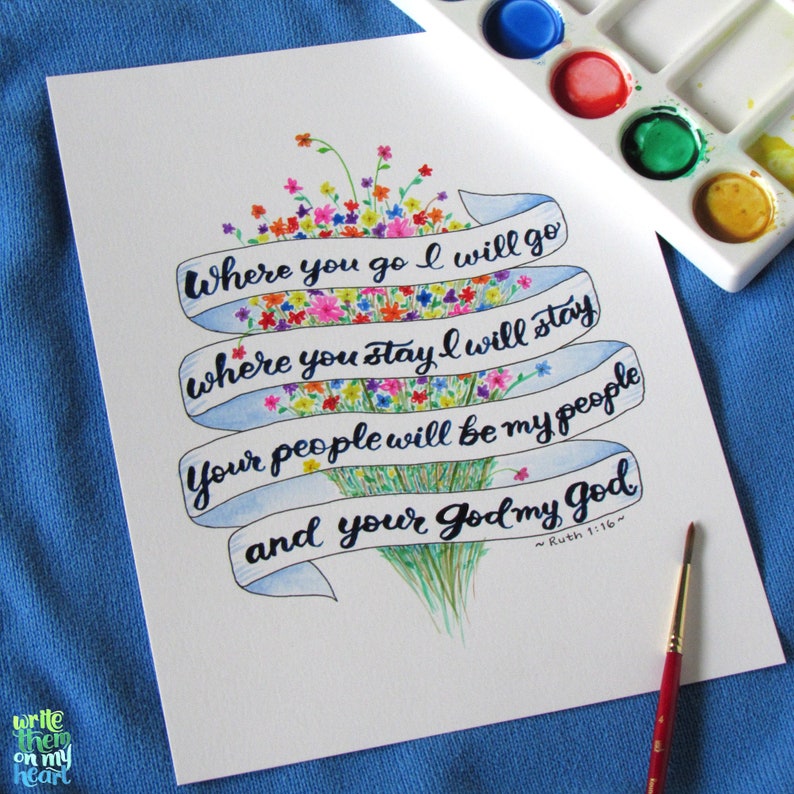 Where you go I will go
where you stay I will stay
Your people will be my people
and your God my God.
~ Ruth 1:16 ~
write
them
on my
heart
4